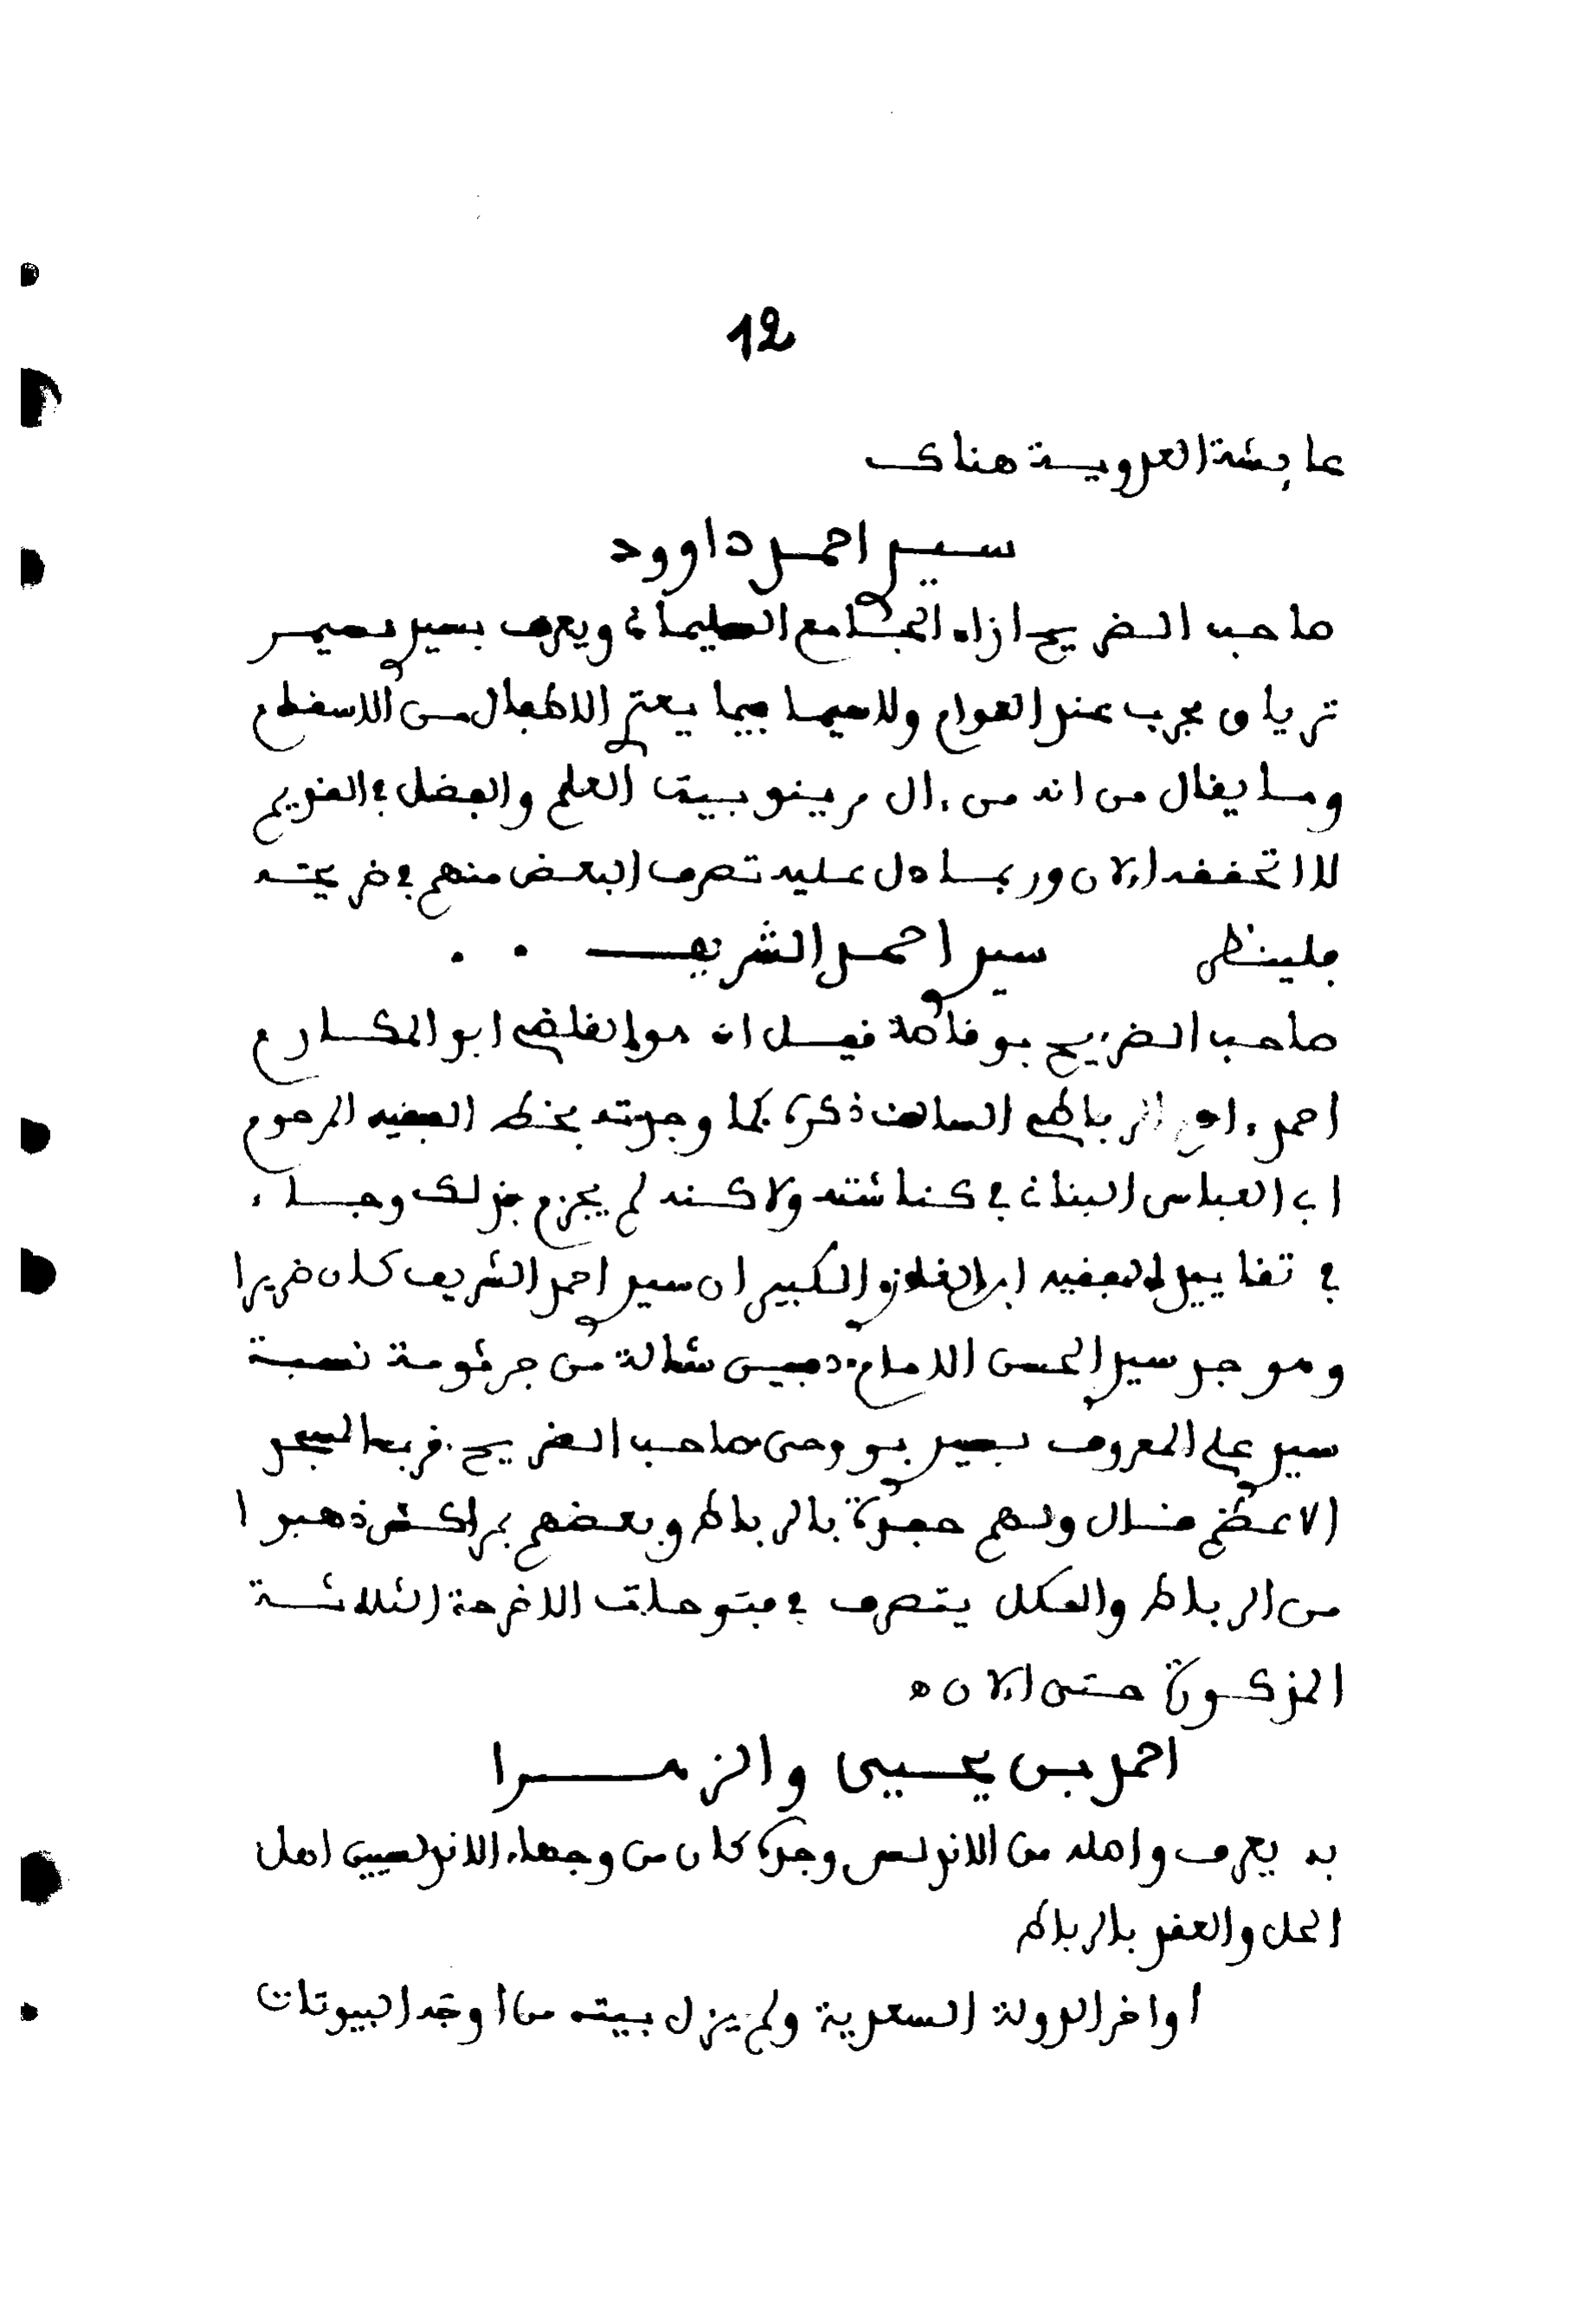 12
عايشة العدوية هناك
سيدي احمد داوود
صاحب الضريح ازاء الجامع السليماني ويعرف بسيدي حميمد
ترياق مجرب عند العوام ولاسيما فيما يعتري الاطفال من الاسقام
وما يقال من انه من ءال مرينو بيت العلم والفضل في القديم
لا اتحققه الان وربما دل عليه تصرف البعض منهم في ضريحه
فلينظر سيدي احمد الشريف
صاحب الضريح بوقاصة قيل انه هو القاضي ابو المكارم
احمد الرباطي السالف ذكره كما وجدته بخط الفقيه المرحوم
ابي العباس البناني في كناشته ولاكنه لم يجزم بذلك وجاء
في تقاييد الفقيه الكبير ان سيدي احمد الشريف كان ضريرا
وهو جد سيدي الحسن الامام دفين شالة من جرثومة نسبة
سيدي علي المعروف بسيدي بو صاحب الضريح قرب المسجد
الاعظم ولهم حفدة بالرباط وبعضهم بمراكش ذهبوا
من الرباط والكل يتصرف في فتوحات الاضرحة الثلاثة
المذكورة حتى الان ه
احمد بن يحيى والزهرا
به يعرف واصله من الاندلس وجده كان من وجهاء الاندلسيين اهل
الحل والعقد بالرباط
اواخر الدولة السعدية ولم يزل بيته من اوجه البيوتات